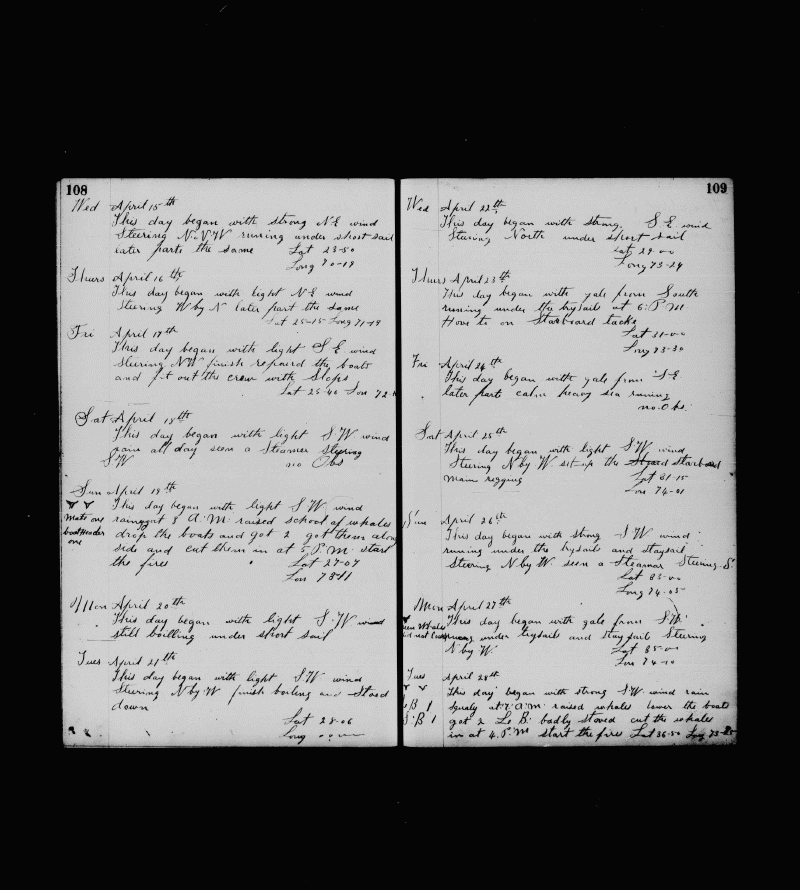 108
Wed April 15th
This day began with strong N.E wind
Steering N.W running under short sail
later parts the same Lat 23-50
Long 70-19
Thurs April 16th
This day began with light N.E wind
Steering W by N later part the same
Lat 25-15 Long 71-19
Fri April 17th
This day began with light S E wind
Steering NW finish repaird the boats
and fit out the crew with Slops
Lat 25-40 Lon 72
Sat April 18th
This day began with light S W wind
rain all day seen a Steamer Steering
S W no Obs
Sun April 19th
This day began with light S.W. wind
Mate one raining at 8 A.M. raised school of whales
boatHeader drop the boats and got 2 got them along
one side and cut them in at 5 P.M. start
the fires Lat 27-07
Lon 73-11
Mon April 20th
This day began with light S.W wind
still boilling under short sail
Tues April 21th
This day began with light S.W wind
Steering N by W finish boiling and Stowed
down
Lat 28-06
Long
109
Wed April 22th
This day began with strong S.E wind
Steering North under short sail
Lat 29-00
Long 73-24
Thurs April 23th
This day began with gale from South
running under the trysails at 6 P M
Hove to on Starboard tacks
Lat 31-00
Long 73-30
Fri April 24th
This day began with gale from S E
later parts calm heavy sea runing
no Obs
Sat April 25th
This day began with light S W wind
Steering N by W set up the Starboard
main rigging Lat 31-15
Lon 74-01
Sun April 26th
This day began with strong S W wind
runing under the trysails and staysail
Steering N by W seen a Steamar Steering S
Lat 33-00
Long 74-05
Mon April 27th
This day began with gale from S.W.
seen Whales
did not Lower runing under trysails and staysail Steering
N by W Lat 35-00
Lon 74-10
Tues April 28th
This day began with strong S.W wind rain
L B 1 Squaly at 7 A.M. raised whales lower the boats
S.B 1 got 2 L.B. badly stoved cut the whales
in at 4 P.M start the fires Lat 36-50 Long 73